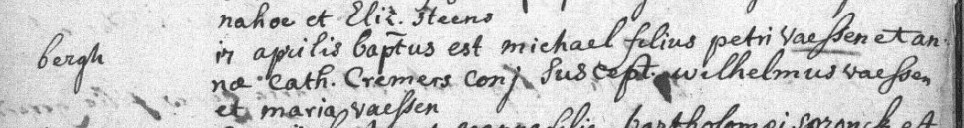 nahoe et Eliz. Steens
bergh
17 aprilis baptus est michael filius petri vaessen et an-
næ Cath. Cremers conj. Suscept. wilhelmus vaessen
et maria vaessen
bartholomei et